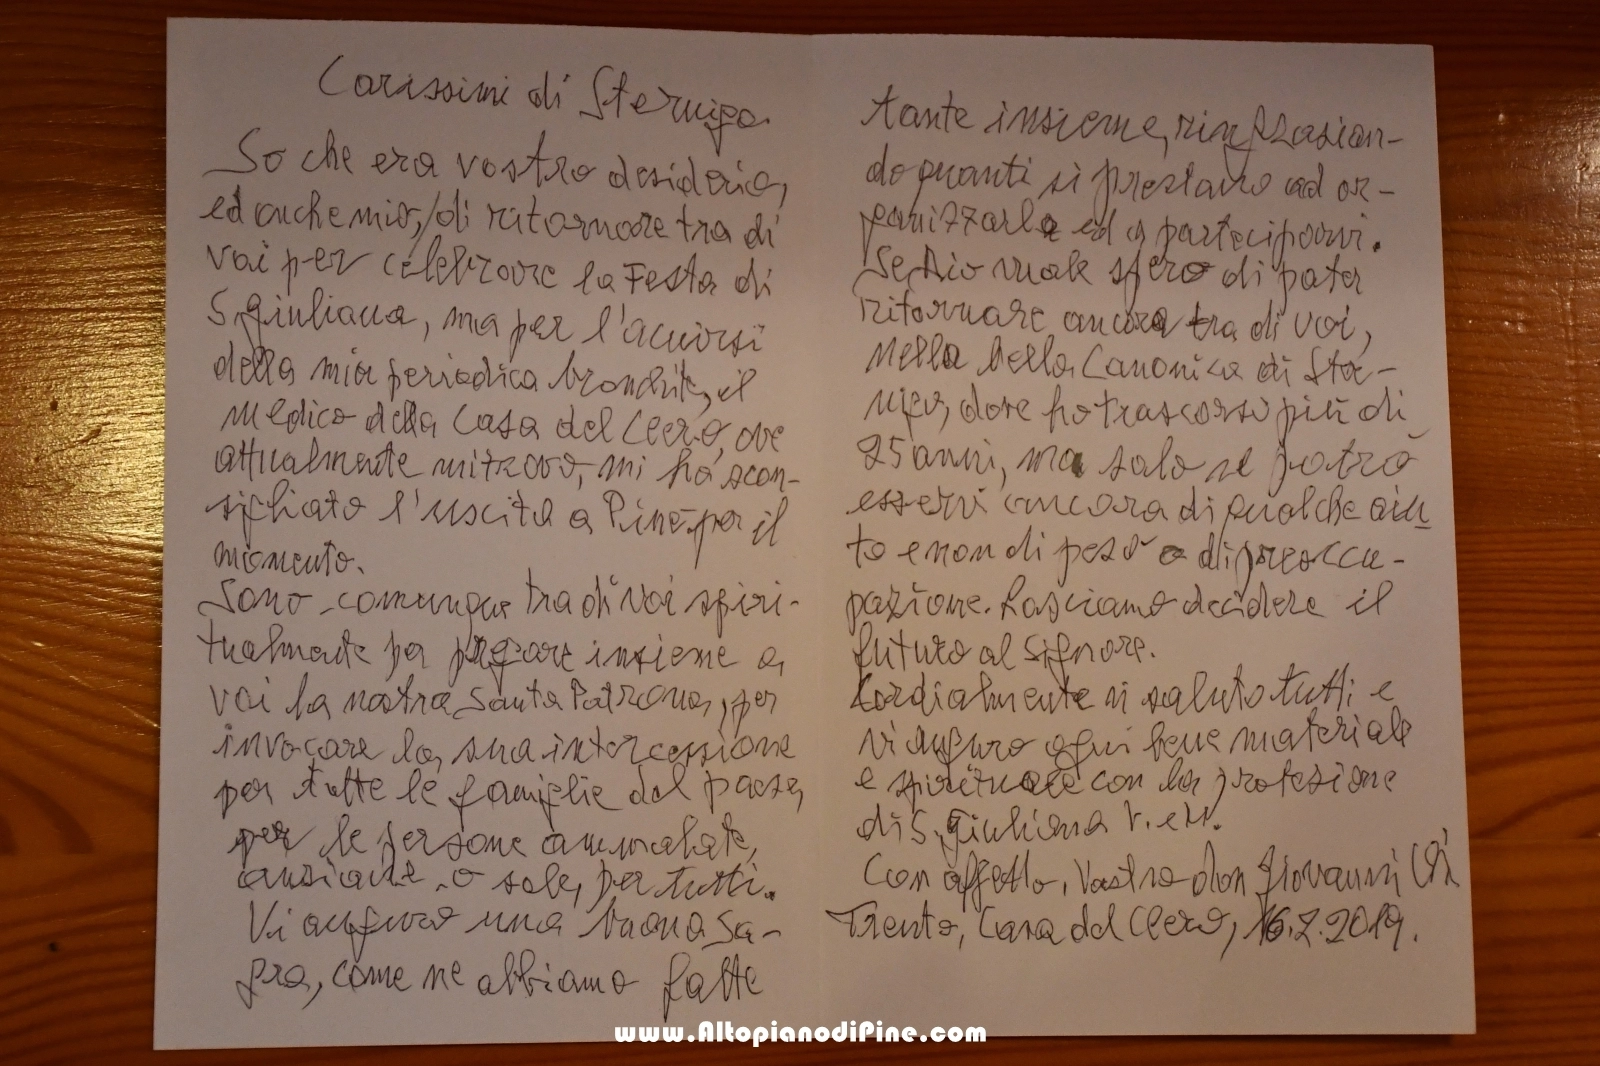 Carissimi di Sternigo.
So che era vostro desiderio,
ed anche mio, di ritornare tra di
voi per celebrare la Festa di
S. Giuliana, ma per l'acuirsi
della mia periodica bronchite, il
medico della Casa del Clero, ove
attualmente mi trovo, mi ha scon-
sigliato l'uscita a Pinè per il
momento.
Sono comunque tra di voi spiri-
tualmente per pregare insieme a
voi la nostra Santa Patrona, per
invocare la sua intercessione
per tutte le famiglie del paese,
per le persone ammalate,
anziane o sole, per tutti.
Vi auguro una buona Sa-
gra, come ne abbiamo fatte
tante insieme, ringrazian-
do quanti si prestano ad or-
ganizzarla ed a parteciparvi.
Se Dio vuole spero di poter
ritornare ancora tra di voi,
nella bella Canonica di Ster-
nigo, dove ho trascorso più di
25 anni, ma solo se potrò
esservi ancora di qualche aiu
to e non di peso o di preoccu-
pazione. Lasciamo decidere il
futuro al Signore.
Cordialmente vi saluto tutti e
vi auguro ogni bene materiale
e spirituale con la protezione
di S. Giuliana V. e M.
Con affetto, Vostro don Giovanni
Trento, Casa del Clero, 16.2.2019.
www.AltopianodiPine.com